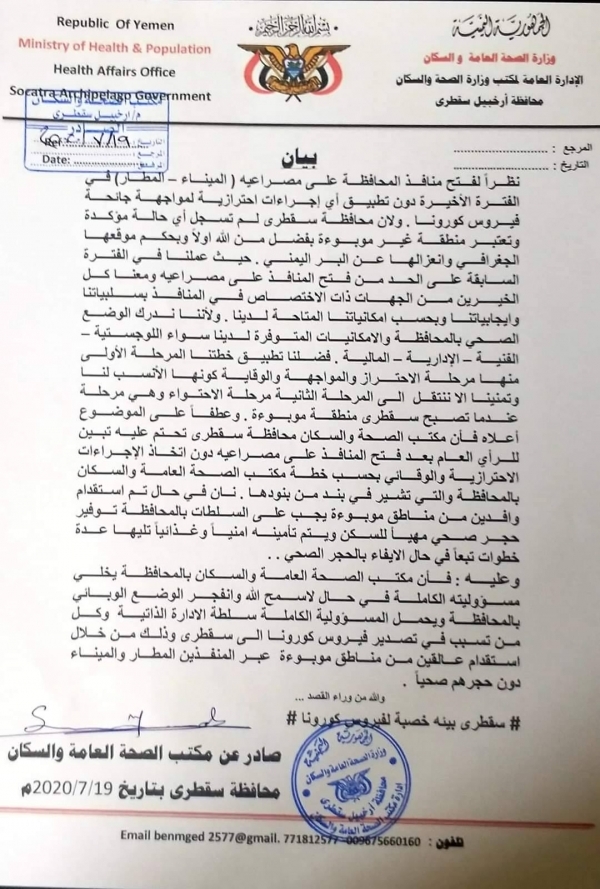 Republic Of Yemen
Ministry of Health & Population
Health Affairs Office
Socatra Archipelago Government
بسم الله الرحمن الرحيم
الجمهورية اليمنية
وزارة الصحة العامة والسكان
الإدارة العامة لمكتب وزارة الصحة والسكان
محافظة أرخبيل سقطرى
مكتب الصحة والسكان
م/ارخبيل سقطرى
الصادر
التاريخ
المرجع
Ref:
Date:
المرجع :
التاريخ :
بيان
نظراً لفتح منافذ المحافظة على مصراعيه ( الميناء – المطار) في
الفترة الأخيرة دون تطبيق أي إجراءات احترازية لمواجهة جائحة
فيروس كورونا . ولان محافظة سقطرى لم تسجل أي حالة مؤكدة
وتعتبر منطقة غير موبوءة بفضل من الله اولاً وبحكم موقعها
الجغرافي وانعزالها عن البر اليمني . حيث عملنا في الفترة
السابقة على الحد من فتح المنافذ على مصراعيه ومعنا كل
الخيرين من الجهات ذات الاختصاص في المنافذ بسلبياتنا
وايجابياتنا وبحسب امكانياتنا المتاحة لدينا . ولأننا ندرك الوضع
الصحي بالمحافظة والامكانيات المتوفرة لدينا سواء اللوجستية –
الفنية – الإدارية – المالية . فضلنا تطبيق خطتنا المرحلة الأولى
منها مرحلة الاحتراز والمواجهة والوقاية كونها الأنسب لنا
وتمنينا الا ننتقل الى المرحلة الثانية مرحلة الاحتواء وهي مرحلة
عندما تصبح سقطرى منطقة موبوءة . وعطفاً على الموضوع
أعلاه فأن مكتب الصحة والسكان محافظة سقطرى تحتم عليه تبين
للرأي العام بعد فتح المنافذ على مصراعيه دون اتخاذ الإجراءات
الاحترازية والوقائي بحسب خطة مكتب الصحة العامة والسكان
بالمحافظة والتي تشير في بند من بنودها . نان في حال تم استقدام
وافدين من مناطق موبوءة يجب على السلطات بالمحافظة توفير
حجر صحي مهيأ للسكن ويتم تأمينه امنياً وغذائياً تليها عدة
خطوات تبعاً في حال الايفاء بالحجر الصحي . .
وعليه : فأن مكتب الصحة العامة والسكان بالمحافظة يخلي
مسؤوليته الكاملة في حال لاسمح الله وانفجر الوضع الوبائي
بالمحافظة ويحمل المسؤولية الكاملة سلطة الادارة الذاتية وكل
من تسبب في تصدير فيروس كورونا الى سقطرى وذلك من خلال
استقدام عالقين من مناطق موبوءة عبر المنفذين المطار والميناء
دون حجرهم صحياً .
والله من وراء القصد ...
# سقطرى بيئه خصبة لفيروس كورونا #
صادر عن مكتب الصحة العامة والسكان
محافظة سقطرى بتاريخ 2020/7/19م
الجمهورية اليمنية
وزارة الصحة العامة والسكان
محافظة أرخبيل سقطرى
إدارة مكتب الصحة العامة والسكان
تلفون : 009675660160 - 771812577 Email benmged 2577@gmail.